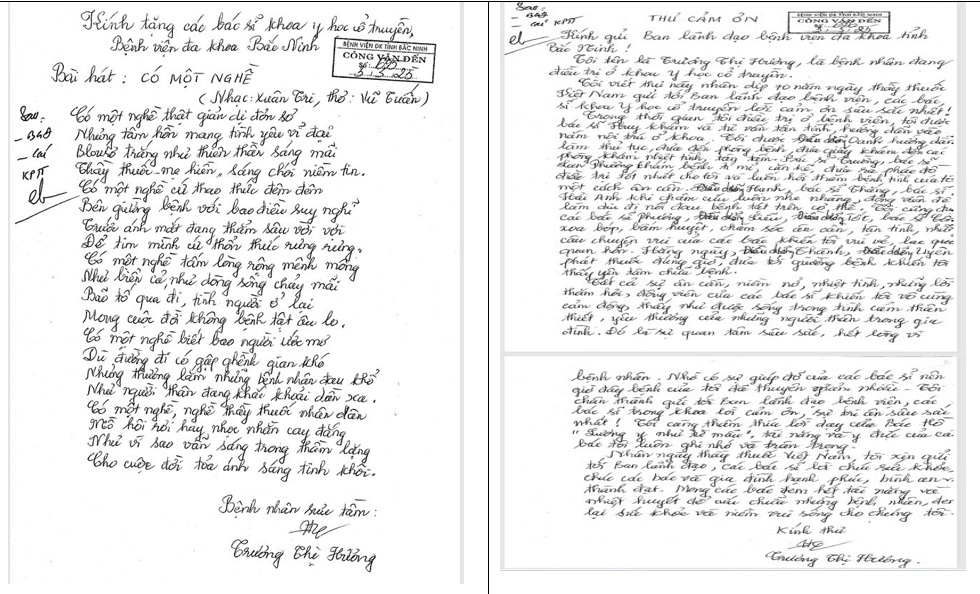 Kính tặng các bác sĩ khoa y học cổ truyền,
Bệnh viện đa khoa Bắc Ninh
BỆNH VIỆN ĐK TỈNH BẮC NINH
CÔNG VĂN ĐẾN
Bài hát: CÓ MỘT NGHỀ
(Nhạc: Xuân Trí, thơ: Vũ Tuấn)
Sao:
- BGĐ
- lưu
KPTT
Có một nghề thật giản dị đơn sơ
Nhưng tâm hồn mang tình yêu vĩ đại
Blouse trắng như thiên thần sáng mãi
Thầy thuốc - mẹ hiền, sáng chói niềm tin.
Có một nghề cứ thao thức đêm đêm
Bên giường bệnh với bao điều suy nghĩ
Trước ánh mắt đang thẳm sâu vời vợi
Để tim mình cứ thổn thức rưng rưng.
Có một nghề tấm lòng rộng mênh mông
Như biển cả, như dòng sông chảy mãi
Bão tố qua đi, tình người ở lại
Mong cuộc đời không bệnh tật âu lo.
Có một nghề biết bao người ước mơ
Dù đường đi có gập ghềnh gian khó
Nhưng thương lắm những bệnh nhân đau khổ
Như người thân đang khắc khoải dần xa.
Có một nghề, nghề thầy thuốc nhân dân
Mồ hôi rơi hay nhọc nhằn cay đắng
Như vì sao vẫn sáng trong thầm lặng
Cho cuộc đời tỏa ánh sáng tinh khôi.
Bệnh nhân sưu tầm:
Trương Thị Hường
Sao:
- BGĐ
THƯ CẢM ƠN
BỆNH VIỆN ĐK TỈNH BẮC NINH
CÔNG VĂN ĐẾN
Kính gửi Ban lãnh đạo bệnh viện đa khoa tỉnh
Bắc Ninh!
Tôi tên là Trương Thị Hường, là bệnh nhân đang
điều trị ở khoa Y học cổ truyền.
Tôi viết thư này nhân dịp 70 năm ngày thầy thuốc
Việt Nam gửi tới Ban lãnh đạo bệnh viện, các bác
sĩ khoa Y học cổ truyền lời cảm ơn sâu sắc nhất!
Trong thời gian tôi điều trị ở bệnh viện, tôi được
bác sĩ Huy khám và tư vấn tận tình, hướng dẫn vào
nằm nội trú ở khoa. Tôi được Oanh hướng dẫn
làm thủ tục, đưa đến phòng bệnh, đưa giấy khám đến các
phòng khám nhiệt tình, tận tâm. Bác sĩ Trường, bác sĩ
Phương thăm bệnh tỉ mỉ, cặn kẽ, đưa ra phác đồ
điều trị tốt nhất cho tôi và luôn hỏi thăm bệnh tình của tôi
một cách ân cần. Hạnh, bác sĩ Thắng, bác sĩ
Hải Anh khi châm cứu luôn nhẹ nhàng, động viên để
làm dịu đi nỗi đau bệnh tật trên cơ thể. Tôi cũng được
các bác sĩ Phương, Tốt, bác sĩ
xoa bóp, bấm huyệt, chăm sóc ân cần, tận tình, những
câu chuyện vui của các bác khiến tôi vui vẻ, lạc quan
quan hơn. Hàng ngày,
phát thuốc đúng giờ, đưa tới giường bệnh khiến tôi
thấy yên tâm chữa bệnh.
Tất cả sự ân cần, niềm nở, nhiệt tình, những lời
thăm hỏi, động viên của các bác sĩ khiến tôi vô cùng
cảm động, thấy như được sống trong tình cảm thân
thiết, yêu thương của những người thân trong gia
đình. Đó là sự quan tâm sâu sắc, hết lòng vì
bệnh nhân. Nhờ có sự giúp đỡ của các bác sĩ nên
giờ đây bệnh của tôi đã thuyên giảm nhiều. Tôi
chân thành gửi tới Ban lãnh đạo bệnh viện, các
bác sĩ trong khoa lời cảm ơn, sự tri ân sâu sắc
nhất! Tôi càng thấm thía lời dạy của Bác Hồ
"Lương y như từ mẫu". Tài năng và y đức của các
bác tôi luôn ghi nhớ và trân trọng.
Nhân ngày thầy thuốc Việt Nam, tôi xin gửi
tới Ban lãnh đạo, các bác sĩ lời chúc sức khỏe,
chúc các bác và gia đình hạnh phúc, bình an,
thành đạt. Mong các bác đem hết tài năng và
nhiệt huyết để cứu chữa những bệnh nhân, đem
lại sức khỏe và niềm vui sống cho chúng tôi.
Kính thư
Trương Thị Hường.